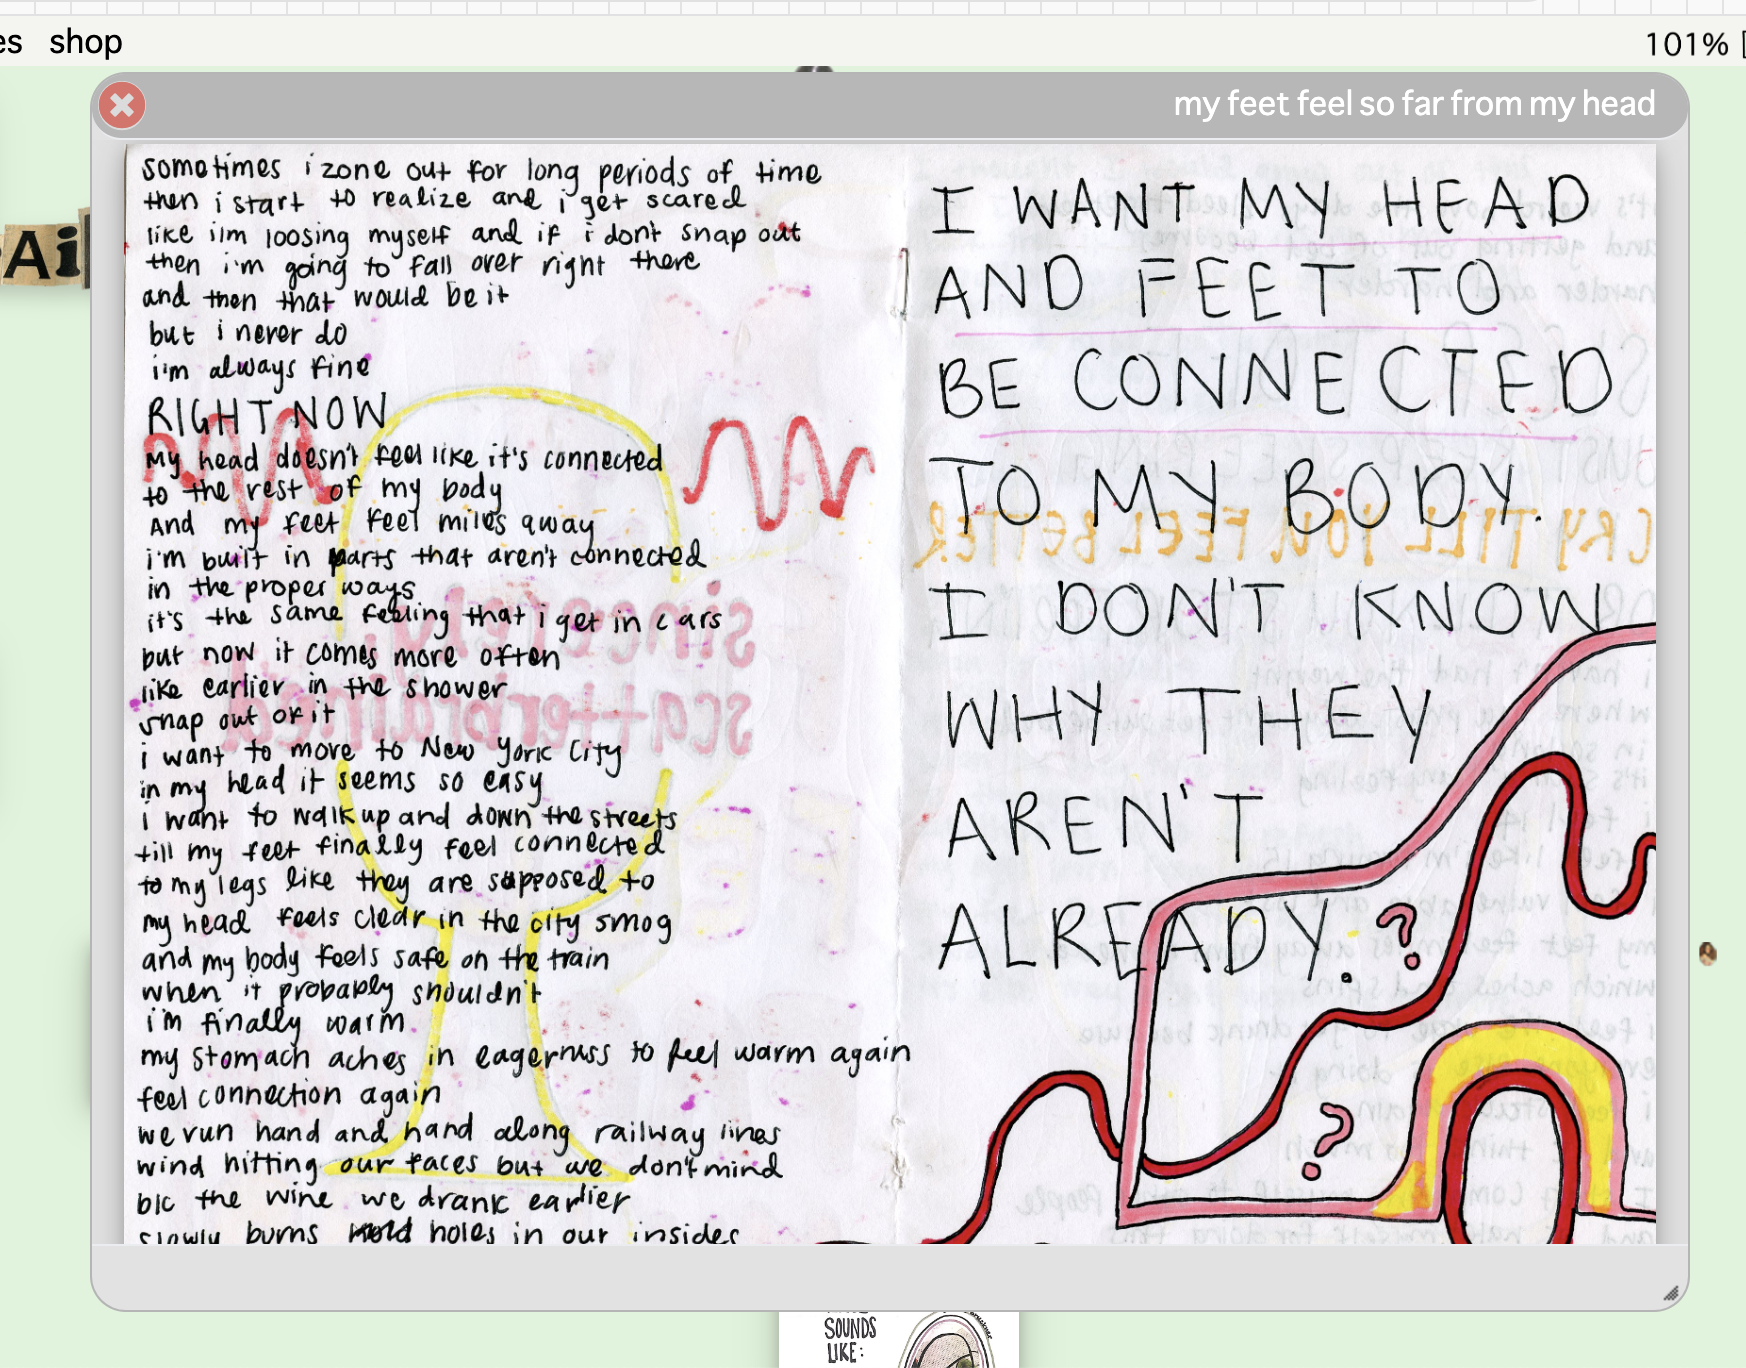 es shop
101%
my feet feel so far from my head
Ai
sometimes i zone out for long periods of time
then i start to realize and i get scared
like i'm loosing myself and if i don't snap out
then i'm going to fall over right there
and then that would be it
but i never do
i'm always fine
RIGHT NOW
My head doesn't feel like it's connected
to the rest of my body
And my feet feel miles away
i'm built in parts that aren't connected
in the proper ways
it's the same feeling that i get in cars
but now it comes more often
like earlier in the shower
snap out of it
i want to move to New York City
in my head it seems so easy
i want to walk up and down the streets
till my feet finally feel connected
to my legs like they are supposed to
my head feels clear in the city smog
and my body feels safe on the train
when it probably shouldn't
i'm finally warm
my stomach aches in eagerness to feel warm again
feel connection again
we run hand and hand along railway lines
wind hitting our faces but we don't mind
b/c the wine we drank earlier
slowly burns holes in our insides
sincerely,
scatterbrained
I WANT MY HEAD
AND FEET TO
BE CONNECTED
TO MY BODY.
CRY TILL YOU FEEL BETTER
I DON'T KNOW
WHY THEY
AREN'T
ALREADY.
?
?
SOUNDS
LIKE: